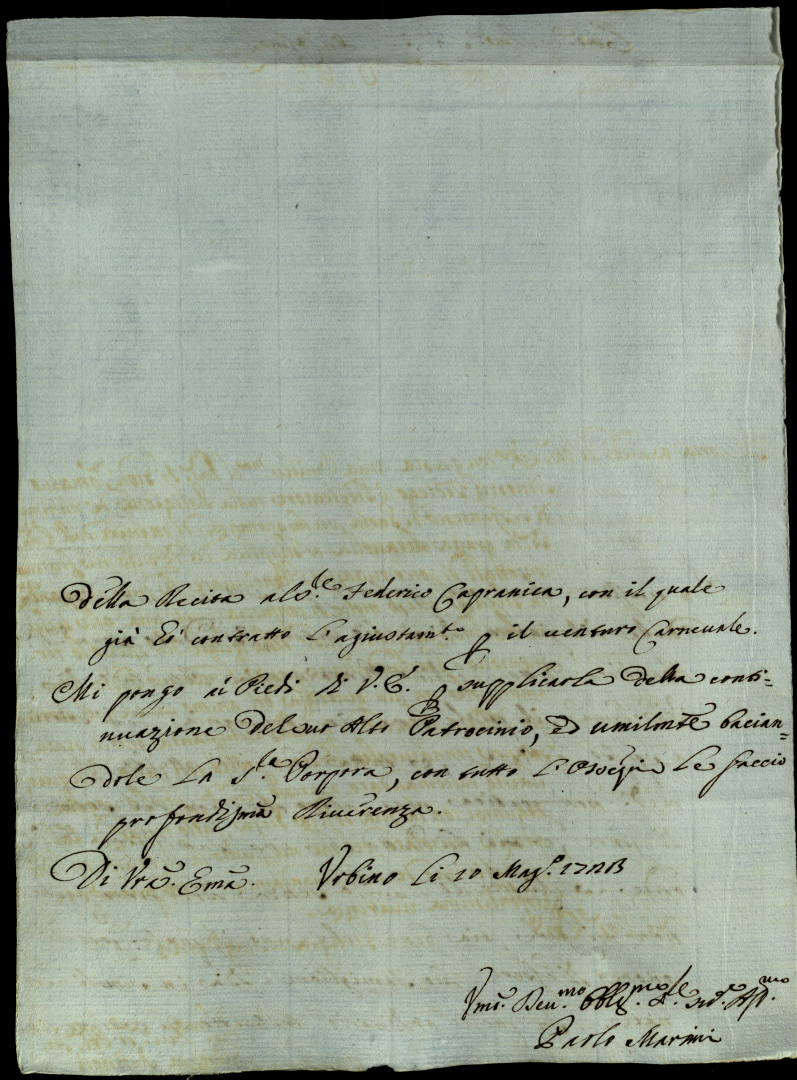 della Recita al S.re Federico Capranica, con il quale
già hò contratto l'agiustam.to p il venturo Carneuale.
Mi pongo ai Piedi di V. E. p supplicarla della conti=
nuazione del suo Alto Patrocinio, ed umilmte bacian=
dole la S.ra Porpora, con tutto l'Ossequio le faccio
profondissma Riuerenza.
Di Vra. Ema. Urbino li 10 Mag.o
Umo. Deu.mo Obblig.mo
Paolo Marini